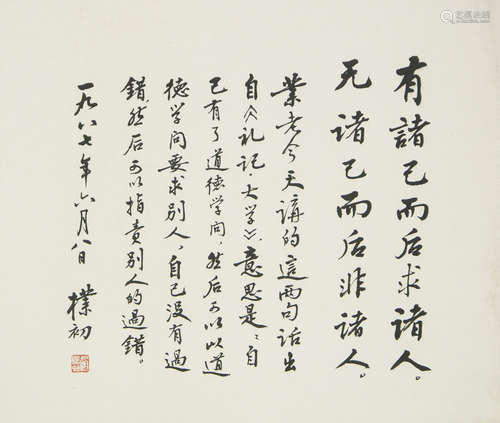 有諸己而后求诸人。
无诸己而后非诸人。
業老今天講的這两句话出
自《礼记大学》，意思是：自
己有了道德学问，然后可以以道
德学问要求别人，自己没有過
错，然后可以指责别人的過错。
一九八七年六月八日
樸初